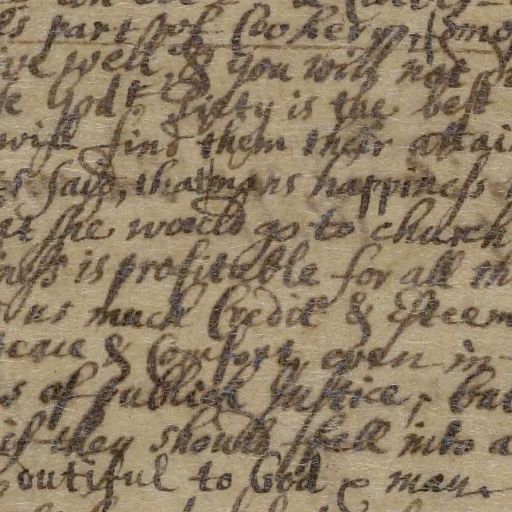 part of Cookery
well & you will not
God. Piety is the best
will find them their attai
said, that mans happiness
at she would go to church
ness is profitable for all th
us much Credit & Esteem
& Comfort, even in
s of publick Justice, but
if they should fall into a
dutiful to God & man.